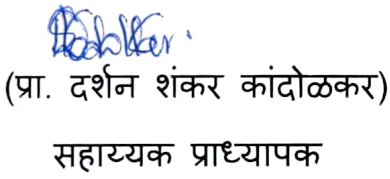 (प्रा. दर्शन शंकर कांदोळकर)
सहाय्यक प्राध्यापक